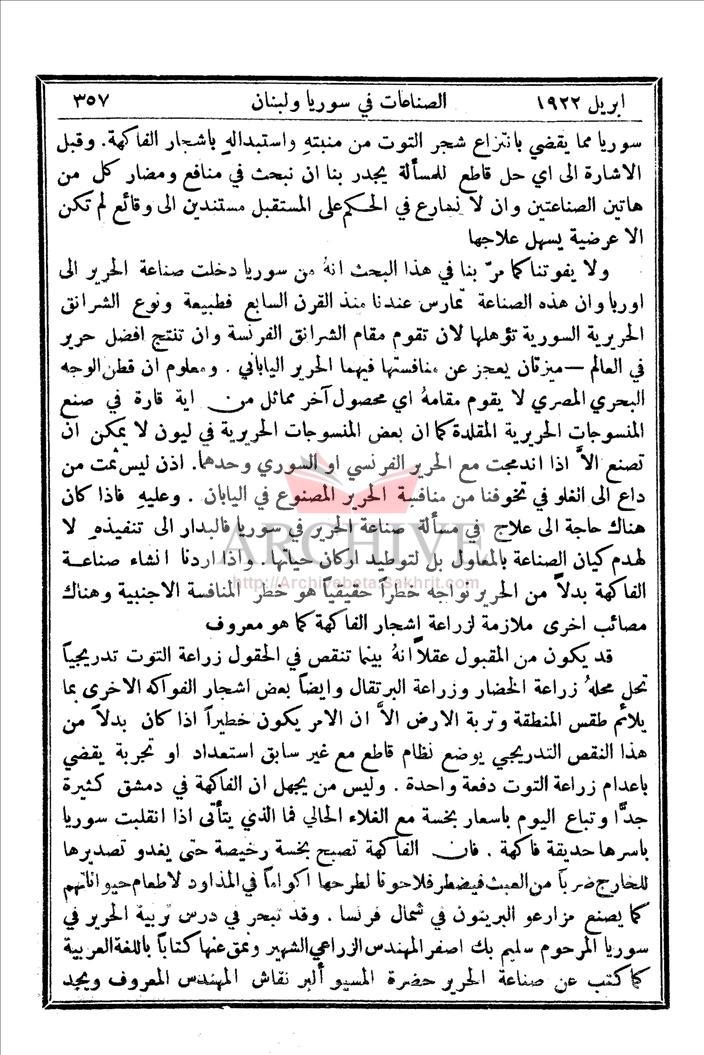 ابريل ١٩٢٢ الصناعات في سوريا ولبنان ٣٥٧
سوريا مما يقضي بانتزاع شجر التوت من منبتهِ واستبدالهِ باشجار الفاكهة. وقبل
الاشارة الى اي حل قاطع للمسألة يجدر بنا ان نبحث في منافع ومضار كل من
هاتين الصناعتين وان لا نمارع في الحكم على المستقبل مستندين الى وقائع لم تكن
الا عرضية يسهل علاجها
ولا يفوتنا كما مرّ بنا في هذا البحث انهُ من سوريا دخلت صناعة الحرير الى
اوربا وان هذه الصناعة تمارس عندنا منذ القرن السابع فطبيعة ونوع الشرانق
الحريرية السورية تؤهلها لان تقوم مقام الشرانق الفرنسة وان تنتج افضل حرير
في العالم — ميزتان يعجز عن منافستها فيهما الحرير الياباني . ومعلوم ان قطن الوجه
البحري المصري لا يقوم مقامهُ اي محصول آخر مماثل من اية قارة في صنع
المنسوجات الحريرية المقلدة كما ان بعض المنسوجات الحريرية في ليون لا يمكن ان
تصنع الاَّ اذا اندمجت مع الحرير الفرنسي او السوري وحدهما. اذن ليس ثمت من
داع الى الغلو في تخوفنا من منافسة الحرير المصنوع في اليابان . وعليهِ فاذا كان
هناك حاجة الى علاج في مسألة صناعة الحرير في سوريا فالبدار الى تنفيذهِ لا
لهدم كيان الصناعة بالمعاول بل لتوطيد اركان حياتها . واذا اردنا انشاء صناعة
الفاكهة بدلاً من الحرير نواجه خطراً حقيقياً هو خطر المنافسة الاجنبية وهناك
مصائب اخرى ملازمة لزراعة اشجار الفاكهة كما هو معروف
قد يكون من المقبول عقلاً انهُ بينما تنقص في الحقول زراعة التوت تدريجياً
تحل محلهُ زراعة الخضار وزراعة البرتقال وايضاً بعض اشجار الفواكه الاخرى بما
يلائم طقس المنطقة وتربة الارض الاَّ ان الامر يكون خطيراً اذا كان بدلاً من
هذا النقص التدريجي يوضع نظام قاطع مع غير سابق استعداد او تجربة يقضي
باعدام زراعة التوت دفعة واحدة . وليس من يجهل ان الفاكهة في دمشق كثيرة
جدًّا وتباع اليوم باسعار بخسة مع الغلاء الحالي فما الذي يتأتى اذا انقلبت سوريا
باسرها حديقة فاكهة . فان الفاكهة تصبح بخسة رخيصة حتى يغدو تصديرها
للخارج ضرباً من العبث فيضطر فلاحونا لطرحها اكواماً في المذاود لاطعام حيواناتهم
كما يصنع مزارعو البريتون في شمال فرنسا . وقد تبحر في درس تربية الحرير في
سوريا المرحوم سليم بك اصفر المهندس الزراعي الشهير ونمق عنها كتاباً باللغة العربية
كما كتب عن صناعة الحرير حضرة المسيو ألبر نقاش المهندس المعروف ويجد
ARCHIVE
http://Archivebeta.Sakhrit.com